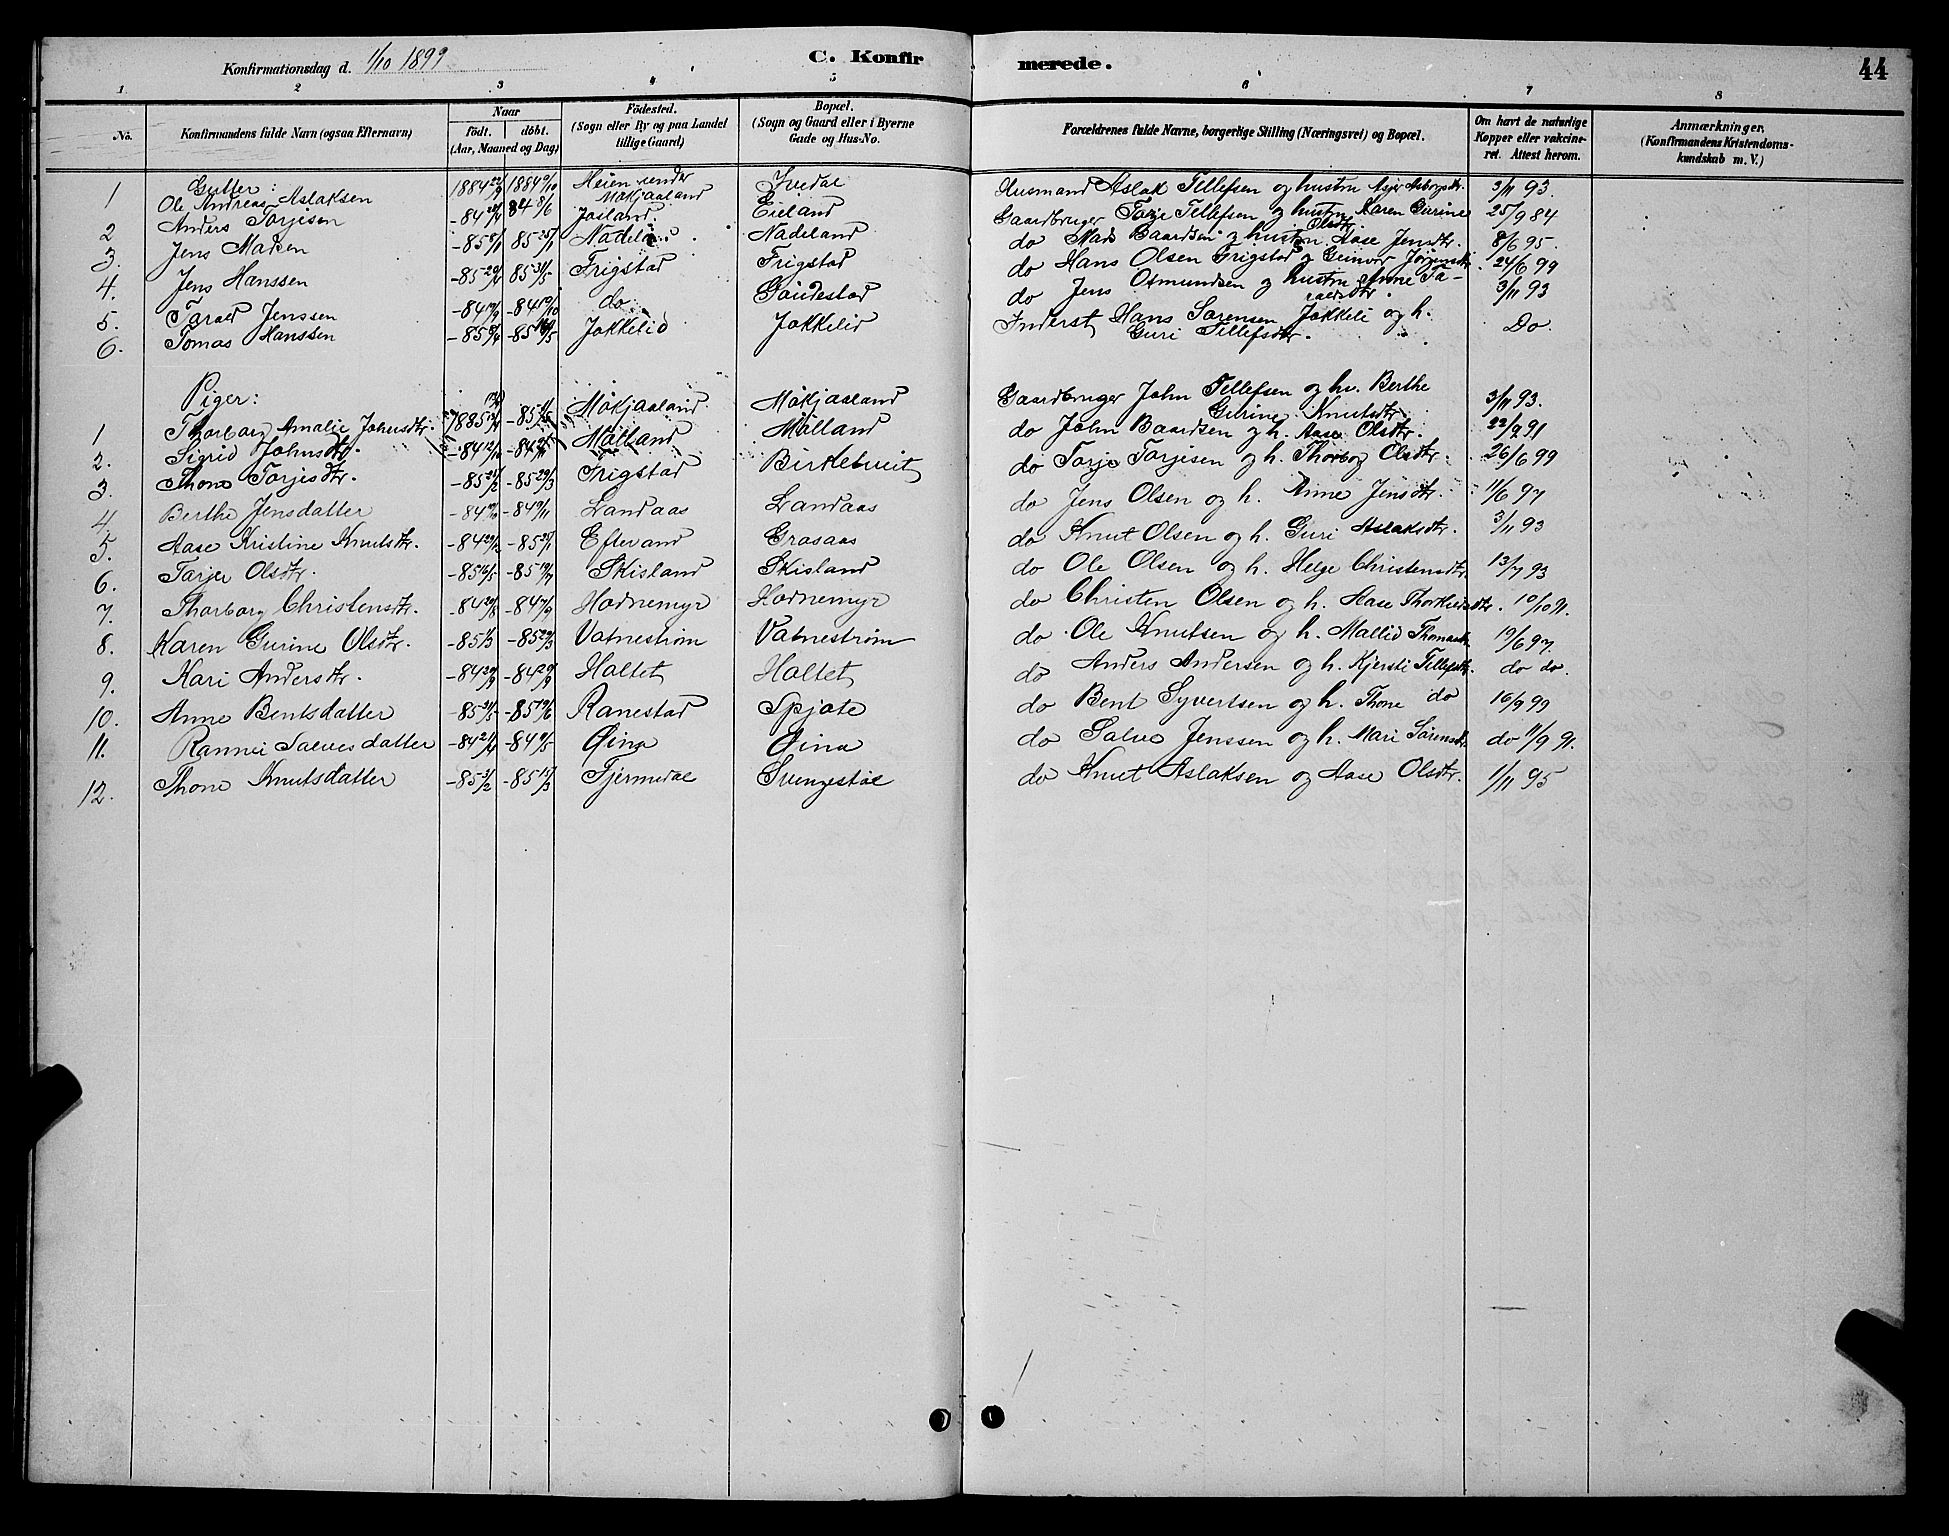 Konfirmationsdag d. 1/10 1899
C. Konfirmerede.
44
1 2 3 4 5 6 7 8
No.
Konfirmandens fulde Navn (ogsaa Efternavn)
Naar
födt. döbt.
(Aar, Maaned og Dag)
Födested.
(Sogn eller By og paa Landet
tillige Gaard)
Bopæl.
(Sogn og Gaard eller i Byerne
Gade og Hus-No.
Forældrenes fulde Navne, borgerlige Stilling (Næringsvei) og Bopæl.
Om havt de naturlige
Kopper eller vakcine-
ret. Attest herom.
Anmærkninger,
(Konfirmandens Kristendoms-
kundskab m. V.)
Gutter:
1 Ole Andreas Aslaksen 1884 1884 Heien under Møkjaaland Ivedal Husmand Aslak Tellefsen og hustru 3/11 93.
2 Anders Torjesen -84 84 8/6 Josland. Eieland Gaardbruger Torje Tellefsen og hustru Karen Gurine Olsdtr. 25/9 84
3. Jens Madsen -85 85 25/1 Nadeland Nadeland do Mads Baardsen og hustru Aase Jensdtr. 8/6 95.
4. Jens Hanssen -85 85 31/5 Frigstad Frigstad do Hans Olsen Frigstad og Gunvor Jørgensdtr. 24/6 99
5. Tarad Jenssen -84 -84 do Gaudestad do Jens Osmundsen og hustru Anne Ta-
radsdtr. 3/11 93
6. Tomas Hanssen -85 -85 Jøkkelid Jøkkelid Inderst Hans Sørensen Jøkkeli og h.
Guri Tellefsdtr. Do.
Piger:
1 Thorborg Amalie Johnsdtr. 1885 -85 Møkjaaland Møkjaaland Gaardbruger John Tellefsen og hu. Berthe
Gurine Knutsdtr. 3/11 93.
2. Sigrid Johnsdtr. -84 -84 Mølland Mølland do John Baardsen og h. Aase Olsdtr. 22/9 91
3. Thone Torjesdtr. -85 -85 29/3 Frigstad Birketveit do Torje Torjesen og h. Thorborg Olsdtr. 26/6 99
4 Berthe Jensdatter -84 -84 Landaas Landaas do Jens Olsen og h. Anne Jensdtr. 11/6 97
5. Aase Kristine Knutsdtr. -84 -85 Eftevand Graaaas do Knut Olsen og h. Guri Aslaksdtr. 3/11 93
6. Tarje Olsdtr. -85 16/5 -85 19/7 Skisland Skisland do Ole Olsen og h. Helge Christensdtr. 13/7 93
7. Thorborg Christensdtr. -84 20/8 -84 7/9 Hodnemyr Hodnemyr do Christen Olsen og h. Aase Thorkildsdtr. 10/10 91.
8. Karen Gurine Olsdtr. -85 1/3 -85 29/3 Vatnestrøm Vatnestrøm do Ole Knutsen og h. Mallid Thomasdtr. 19/6 97.
9. Kari Andersdtr. -84 -84 Haltet Haltet do Anders Andersen og h. Kjersti Tellefsdtr. do do
10. Anne Bentsdatter -85 31/5 -85 19/6 Ranestad Spjote do Bent Syvertsen og h. Thone do 16/9 99
11. Rannei Salvesdatter -84 21/4 -84 9/5 Øina Øina do Salve Jenssen og h. Mari Sørensdtr. do 11/9 91.
12. Thone Knutsdatter -85 3/2 -85 15/3 Tjermedal Svengestøl do Knut Aslaksen og Aase Olsdtr. 1/11 95